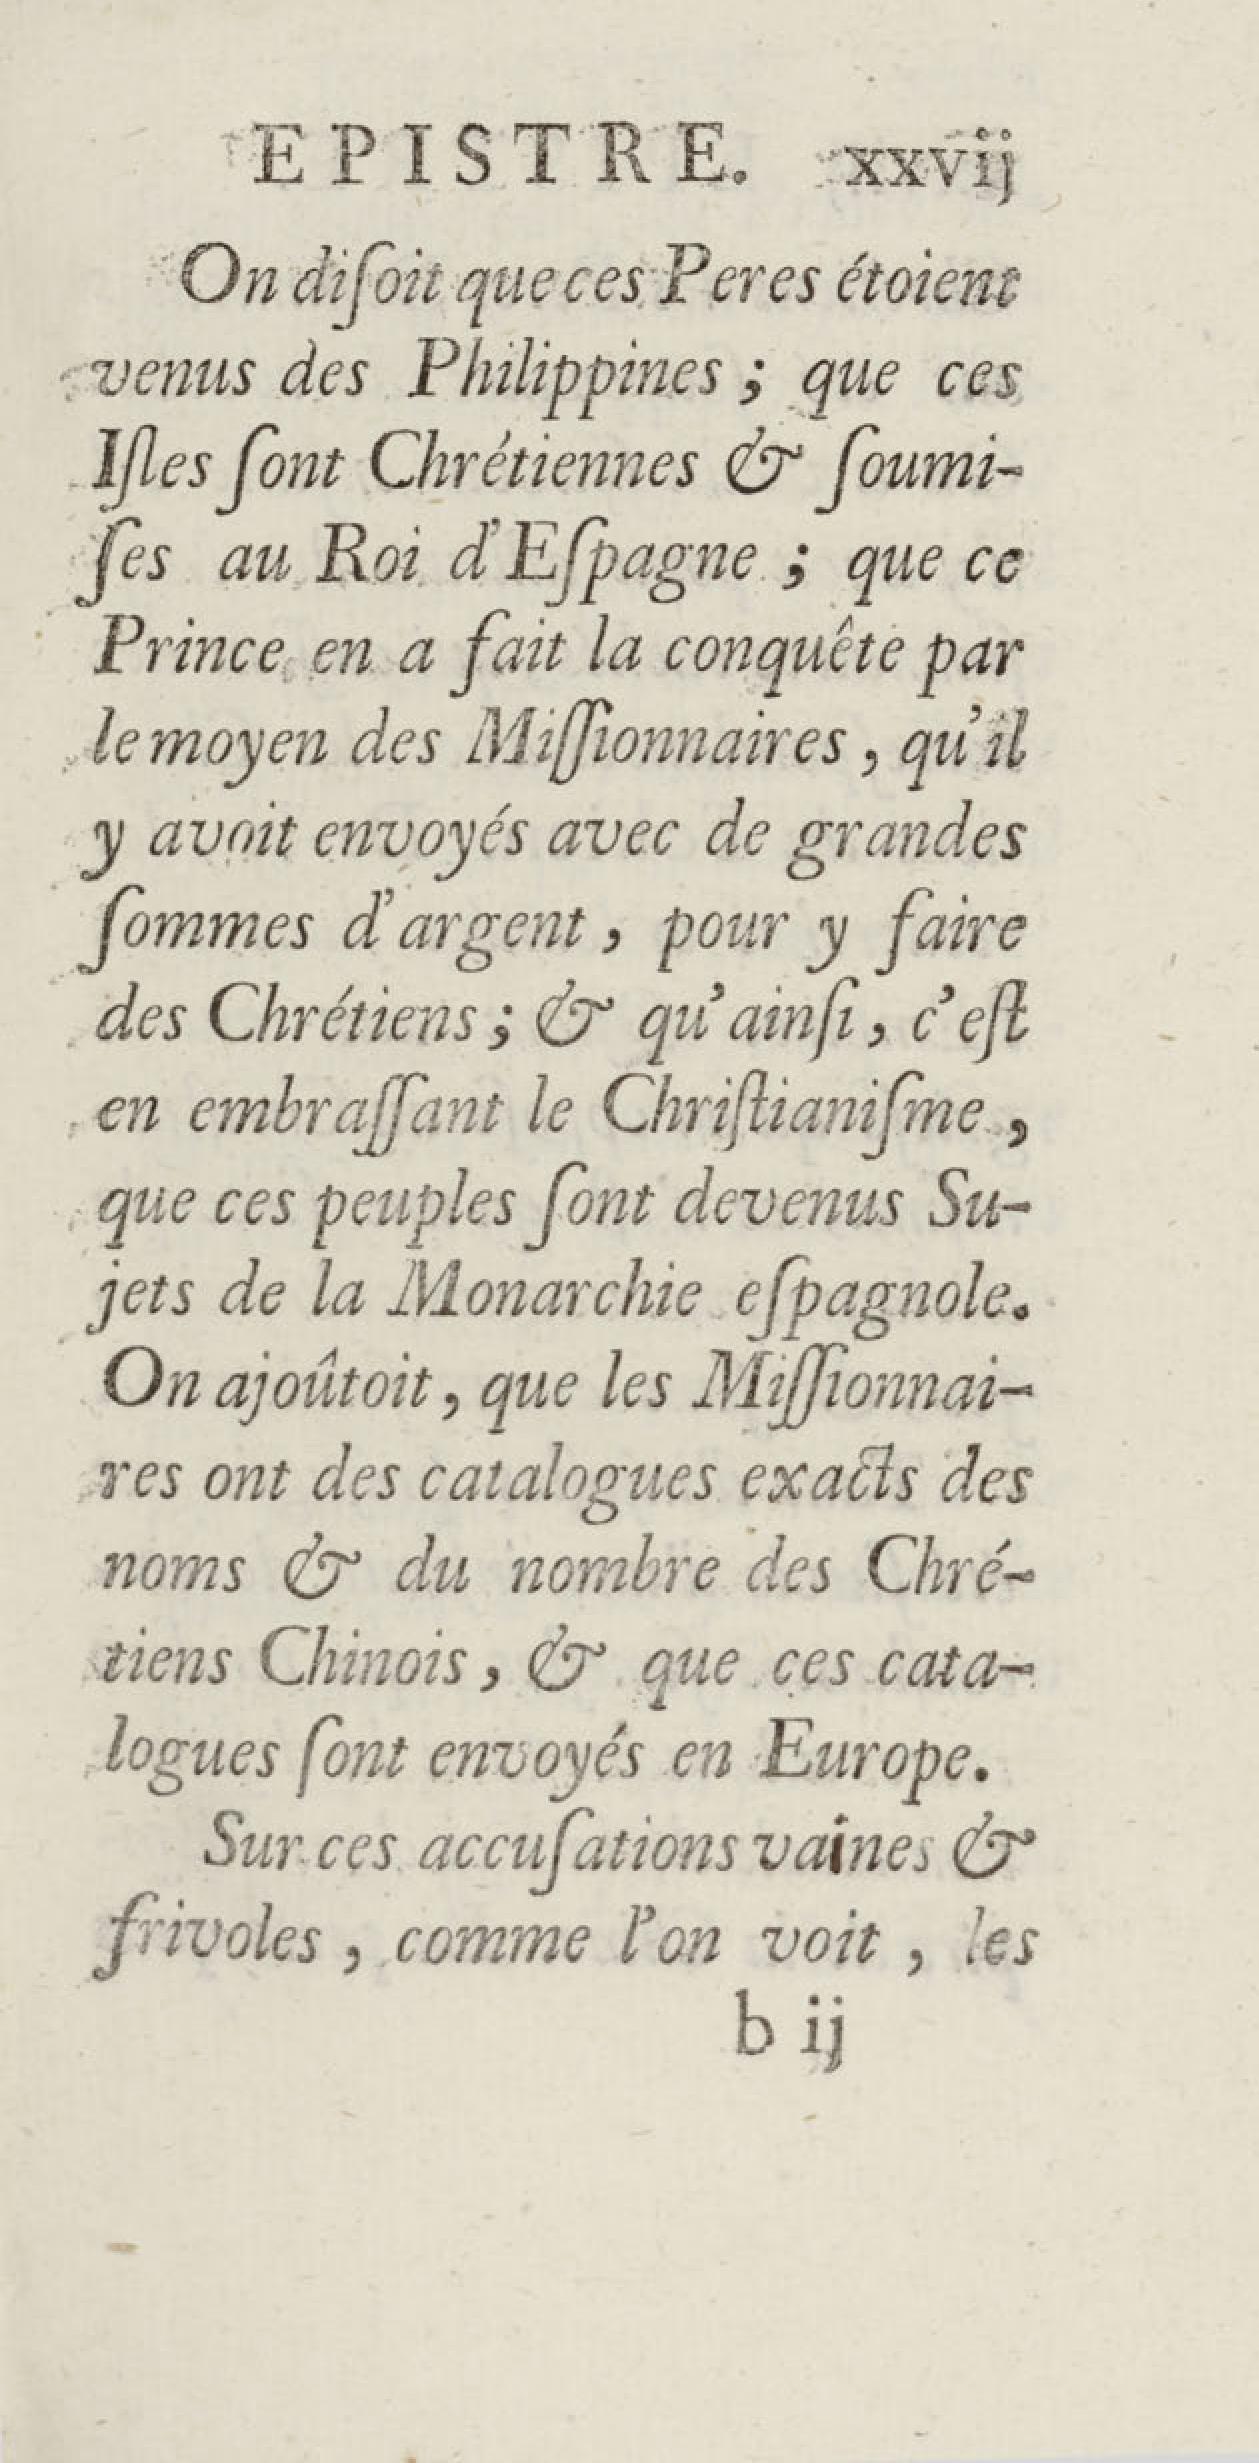 EPISTRE. xxvij
On diſoit que ces Peres étoient
venus des Philippines ; que ces
Iſles ſont Chrétiennes & ſoumi-
ſes au Roi d'Eſpagne ; que ce
Prince en a fait la conquête par
le moyen des Miſſionnaires , qu'il
y avoit envoyés avec de grandes
ſommes d'argent , pour y faire
des Chrétiens ; & qu'ainſi , c'eſt
en embraſſant le Chriſtianiſme ,
que ces peuples ſont devenus Su-
jets de la Monarchie eſpagnole.
On ajoûtoit , que les Miſſionnai-
res ont des catalogues exacts des
noms & du nombre des Chré-
tiens Chinois , & que ces cata-
logues ſont envoyés en Europe.
Sur ces accuſations vaines &
frivoles , comme l'on voit , les
b ij